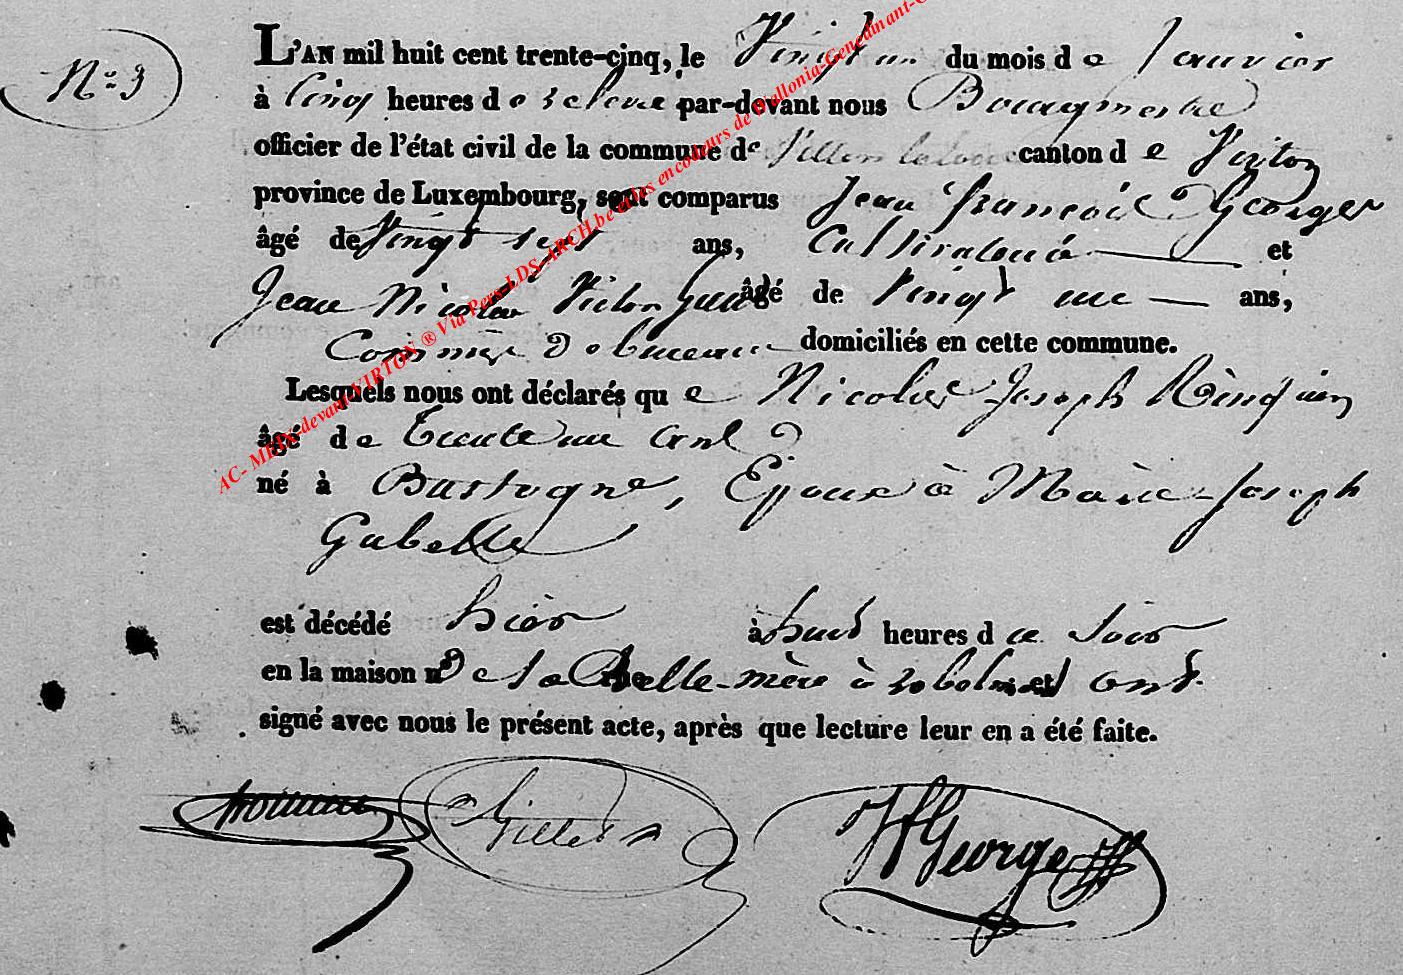 N° 3
L'AN mil huit cent trente-cinq, le Vingt un du mois de Janvier
à Cinq heures de relevée par-devant nous Bourgmestre
officier de l'état civil de la commune de canton de Virton
province de Luxembourg, sont comparus Jean françois Georges
âgé de Vingt sept ans, Cultivateur et
Jean Nicolas Victor âgé de Vingt un ans,
Commis de bureau domiciliés en cette commune.
Lesquels nous ont déclarés que Nicolas Joseph
âgé de Trente un ans
né à Bastogne, Epoux à Marie-Joseph
Gabelle
est décédé hier à huit heures du soir
en la maison de sa Belle-mère à et ont
signé avec nous le présent acte, après que lecture leur en a été faite.
Gillet JF George
AC- MEIX-devant-VIRTON ® Via Pers-LDS-ARCH.be et les encodeurs de Wallonia-Genedinant-